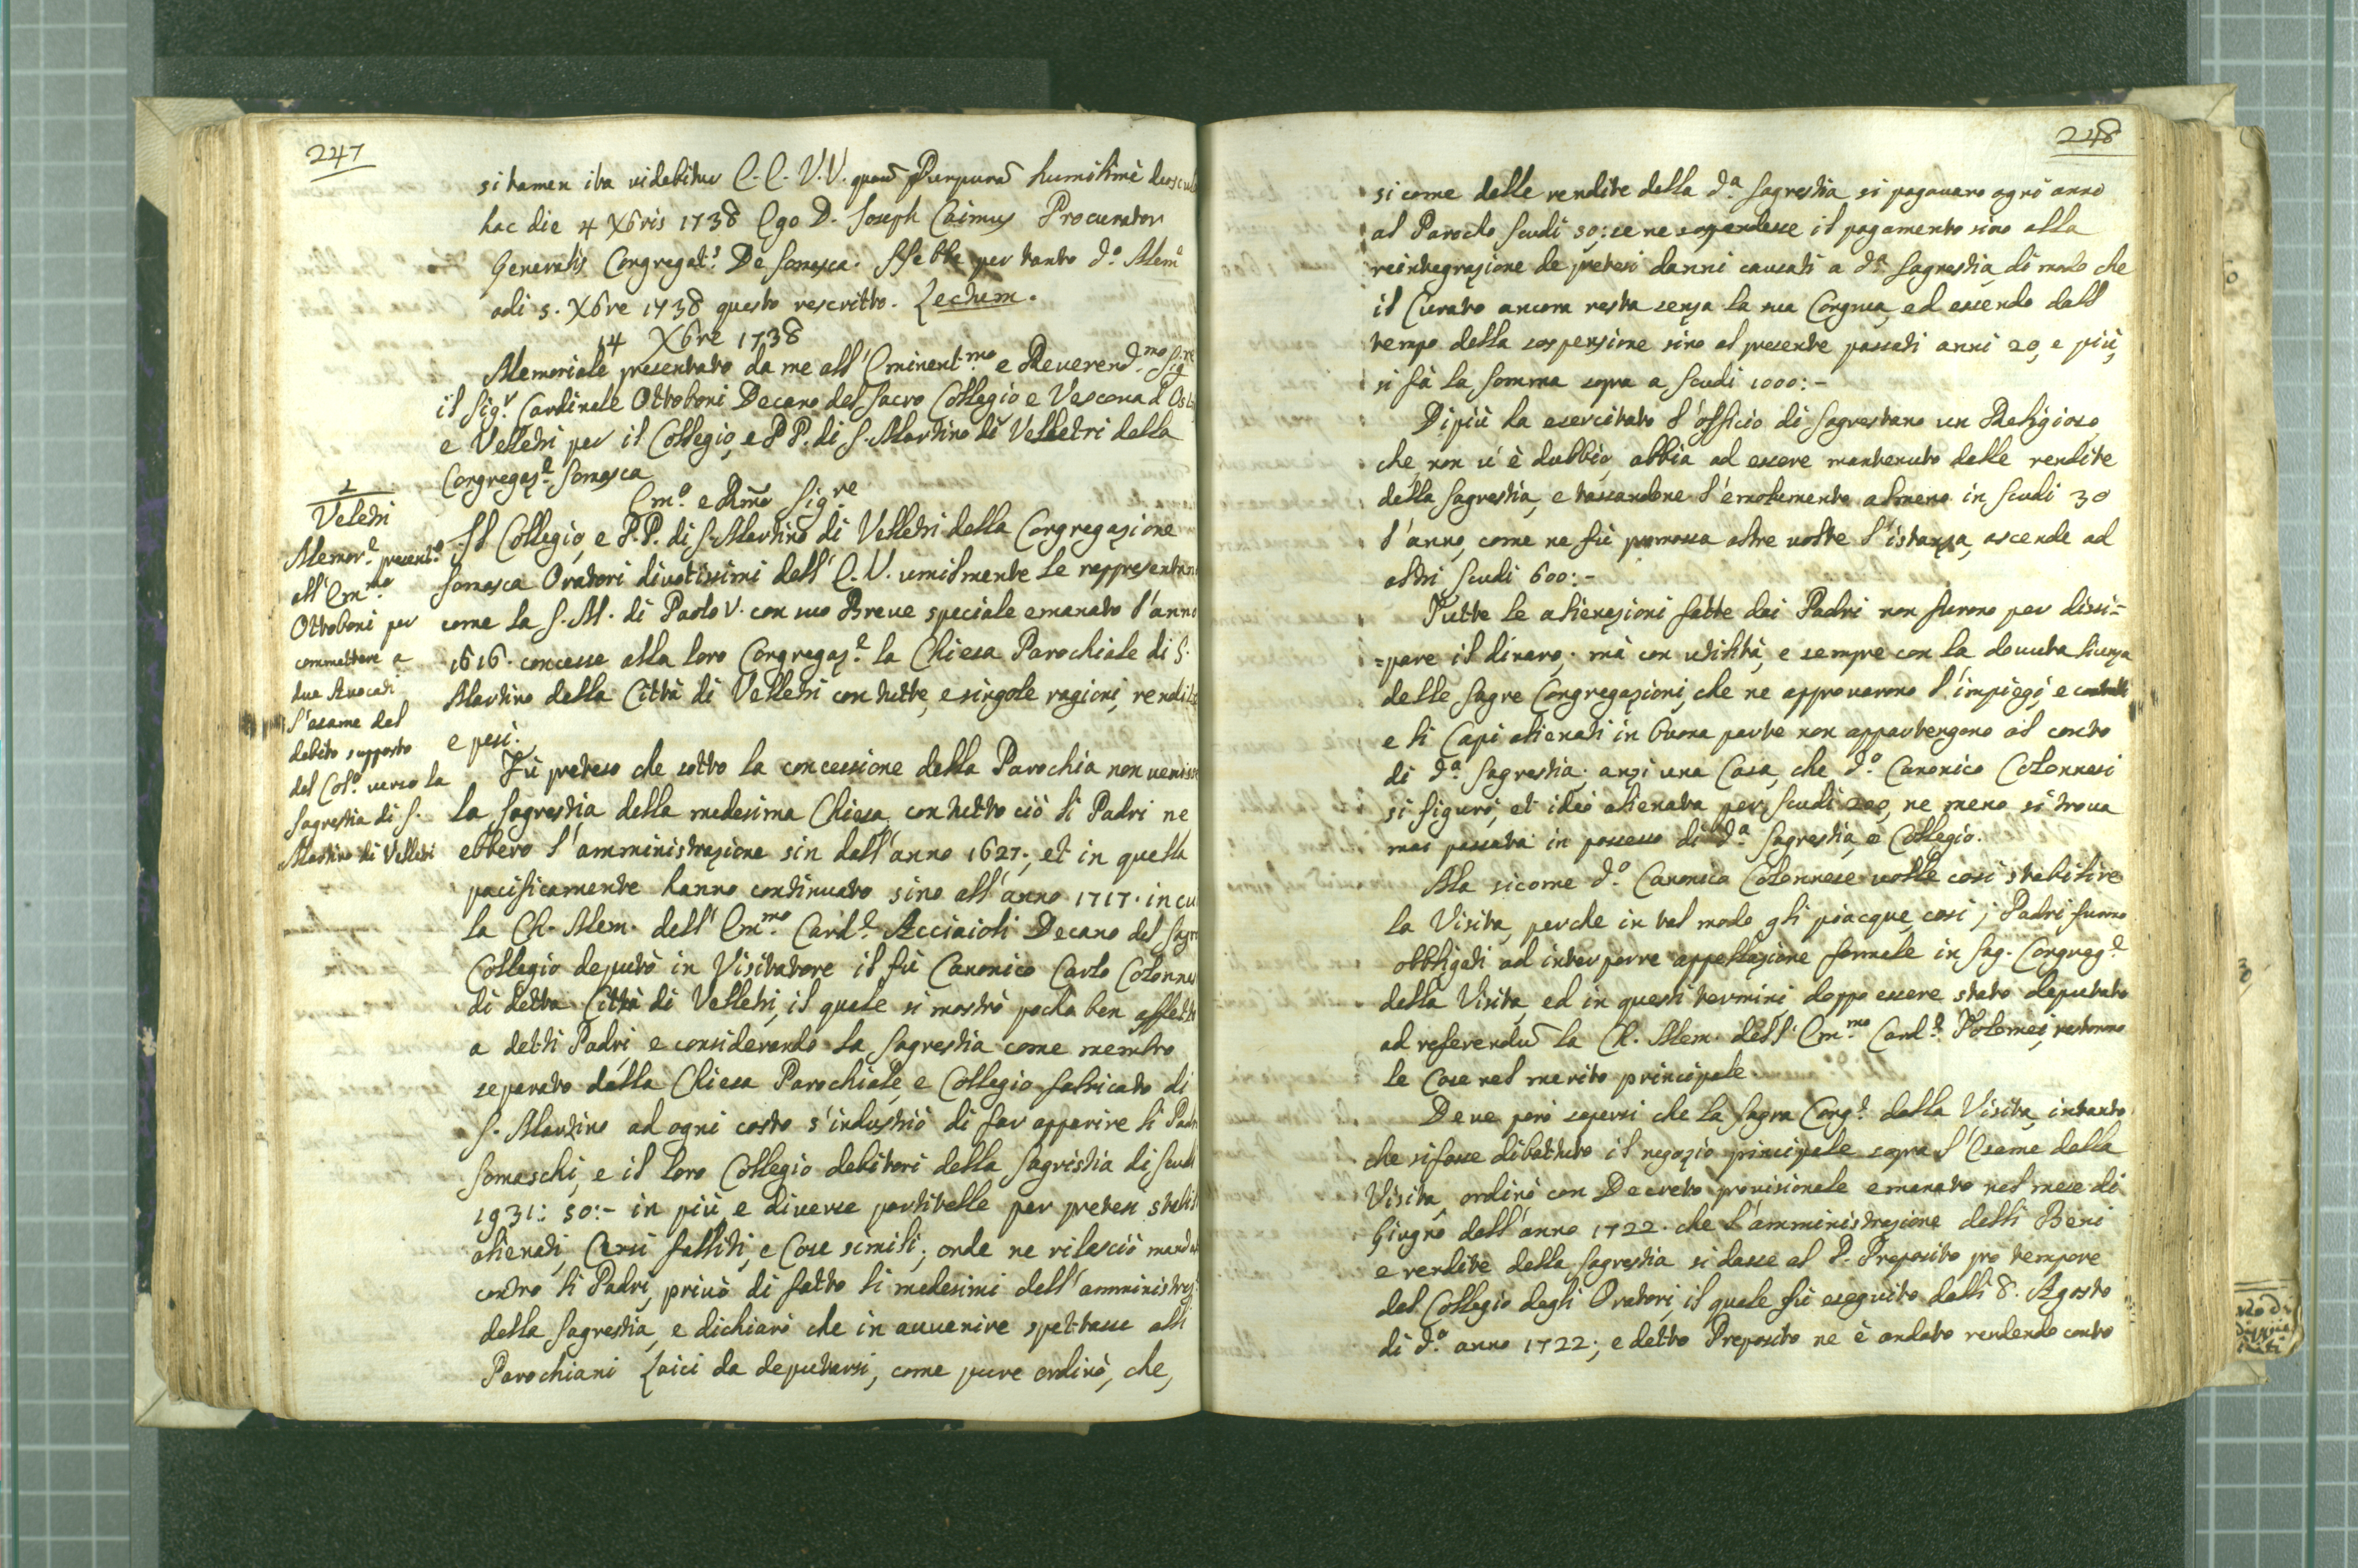 247
si tamen ita videbitur E. E. V.V. quarũ Purpurã humilimè deoscul
hac die 4 Xbris 1738 Ego D. Joseph Caimus Procurator
Generalis Congregat.s De Somasca. S'ebbe per tanto d.o Mem.
adi 5. Xbre 1738 questo rescritto. Lectum.
14 Xbre 1738
Memoriale presentato da me all'Eminent.mo e Reverend.mo Sig.re
il Sig.r Cardinale Ottoboni Decano del Sacro Collegio e Vescovo d'Ost
e Velletri per il Collegio, e PP. di S. Martino di Velletri della
Congregaz.e Somasca
Em.o e Rmo Sig.re
Il Collegio, e P.P. di S. Martino di Velletri della Congregazione
Somasca Oratori divotissimi dell'E.V. umilmente le rappresentan
come la S.M. di Paolo V. con suo Breve speciale emanato l'anno
1616. concesse alla loro Congregaz.e la Chiesa Parochiale di S.
Martino della Città di Velletri con tutte, e singole ragioni, rendite
e pesi.
Fù preteso che sotto la concessione della Parochia non venisse
la Sagrestia della medesima Chiesa, con tutto ciò li Padri ne
ebbero l'amministrazione sin dall'anno 1627., et in quella
pacificamente hanno continuato sino all'anno 1717. in cu
la Ch. Mem. dell'Em.mo Card.e Acciaioli Decano del Sagro
Collegio deputò in Visitatore il fù Canonico Carlo Colonne
di detta Città di Velletri, il quale si mostrò pocho ben affetto
a detti Padri, e considerando la Sagrestia come membro
separato dalla Chiesa Parochiale, e Collegio fabricato di
S. Martino ad ogni costo s'industriò di far apparire li Padri
Somaschi, e il loro Collegio debitori della Sagristia di Scudi
1931: 50:- in più, e diverse partitelle per pretesi stabili
alienati, Censi falliti, e Cose simili; onde ne rilasciò mand
contro li Padri, privò di fatto li medesimi dell'amministraz
della Sagrestia, e dichiarò che in avvenire spettasse alli
Parochiani Laici da deputarsi, come pure ordinò, che,
1
Veletri
Memor.e present.o
all'Em.mo
Ottoboni per
commettere a
due Avocati
l'esame del
debito supposto
del Col.o verso la
Sagrestia di S.
Martino di Velletri
248
si come delle rendite della d.a Sagrestia si pagavano ogni anno
al Parocho Scudi 50: se ne sospendesse il pagamento sino alla
reintegrazione de pretesi danni causati a d.a Sagrestia, di modo che
il Curato ancora resta senza la sua Congrua, ed essendo dall
tempo della sospensione sino al presente passati anni 20, e più,
si fà la somma sopra a Scudi 1000:-
Di più ha esercitato l'officio di Sagrestano un Religioso,
che non v'è dubbio, abbia ad essere mantenuto delle rendite
della Sagrestia, e tassandone l'emolumento almeno in Scudi 30
l'anno, come ne fù promossa altre volte l'istanza, ascende ad
altri Scudi 600:-
Tutte le alienazioni fatte dai Padri non furono per dissi=
=pare il dinaro; mà con utilità, e sempre con la dovuta licenza
delle Sagre Congregazioni, che ne approvarono l'impiego, e contratti
e li Capi alienati in buona parte non appartengono al conto
di d.a Sagrestia; anzi una Casa, che d.o Canonico Colonnesi
si figurò, et ideò alienata per Scudi 200, ne meno si trova
mai passata in possesso di d.a Sagrestia, e Collegio.
Ma sicome d.o Canonico Colonnese volle così stabilire
la Visita, perche in tal modo gli piacque, così i Padri furono
obbligati ad interporre appellazione formale in Sag. Congreg.e
della Visita, ed in questi termini, doppo essere stato deputato
ad referendũ la Ch. Mem. dell'Em.mo Card.e Tolomei, restorono
le Cose nel merito principale.
Deve però sapersi che la Sagra Cong.e della Visita, intanto
che si fosse dibattuto il negozio principale sopra l'Esame della
Visita, ordinò con Decreto provisionale emanato nel mese di
Giugno dell'anno 1722. che l'amministrazione delli Beni
e rendite della Sagrestia si dasse al P. Preposito pro tempore
del Collegio degli Oratori, il quale fù eseguito dalli 8. Agosto
di d.o anno 1722; e detto Preposito ne è andato rendendo conto